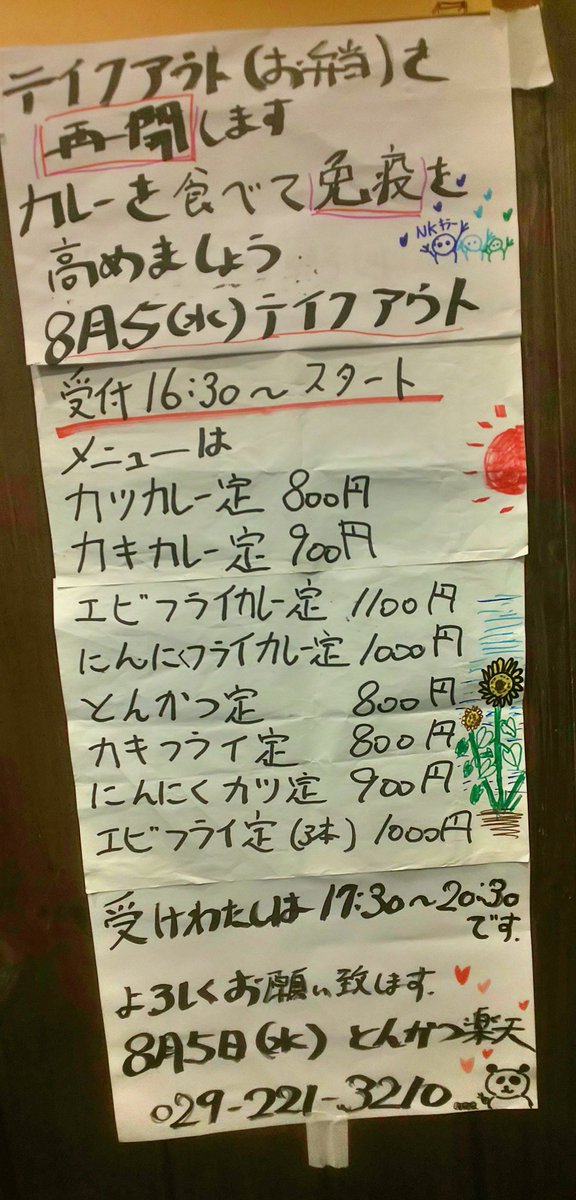 テイクアウト(お弁当)を
再開します
カレーを食べて免疫を
高めましょう
NK
8月5(水)テイクアウト
受付16:30〜スタート
メニューは
カツカレー定 800円
カキカレー定 900円
エビフライカレー定 1100円
にんにくフライカレー定 1000円
とんかつ定 800円
カキフライ定 800円
にんにくカツ定 900円
エビフライ定(3本) 1000円
受けわたしは17:30〜20:30
です.
よろしくお願い致します.
8月5日(水) とんかつ楽天
029-221-3210